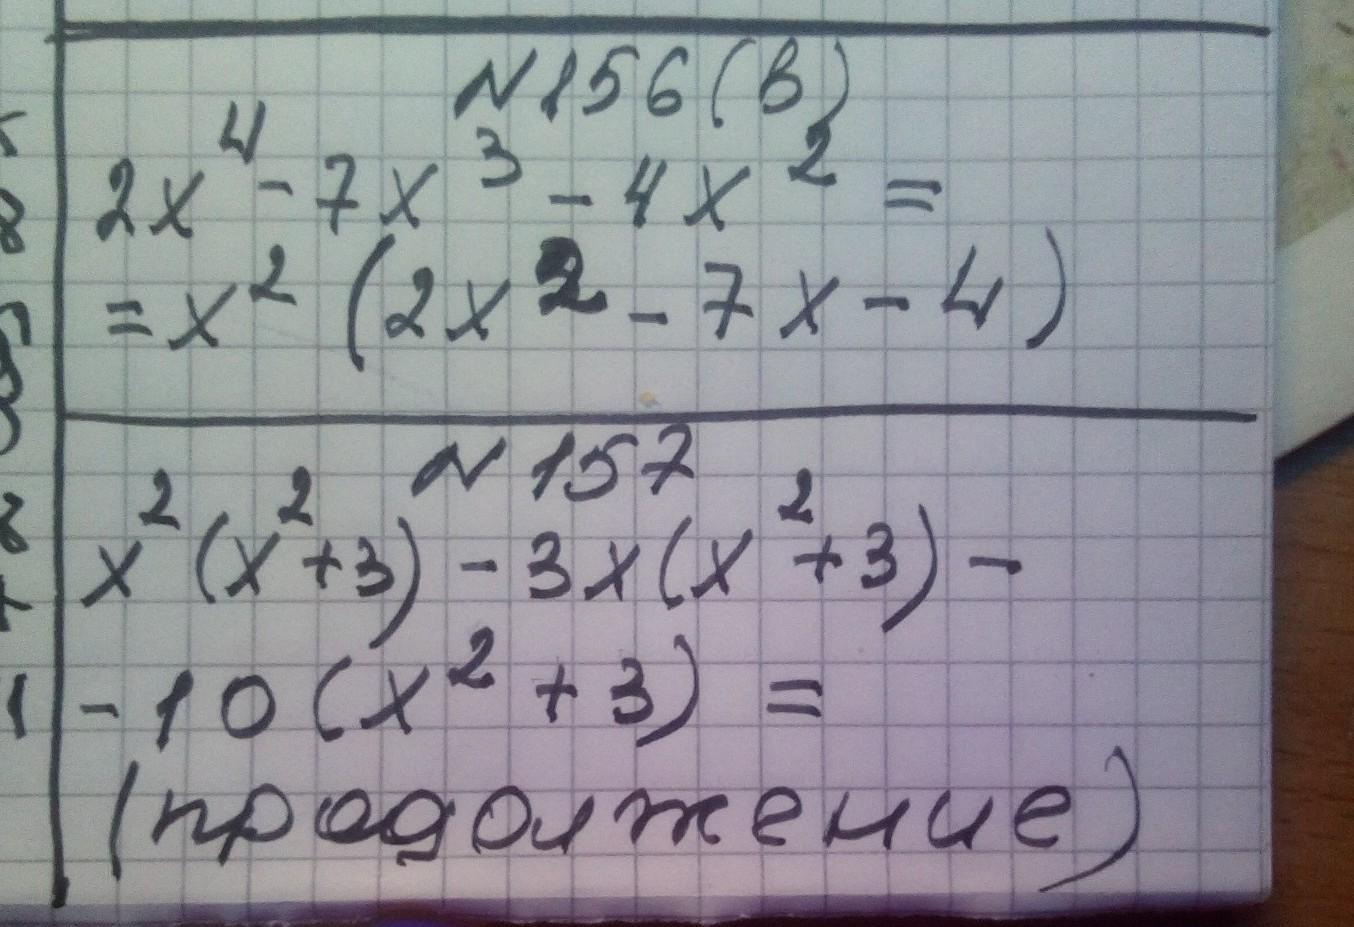 N156(в)
2x⁴-7x³-4x²=
=x²(2x²-7x-4)
N157
x²(x²+3)-3x(x²+3)-
-10(x²+3)=
(продолжение)